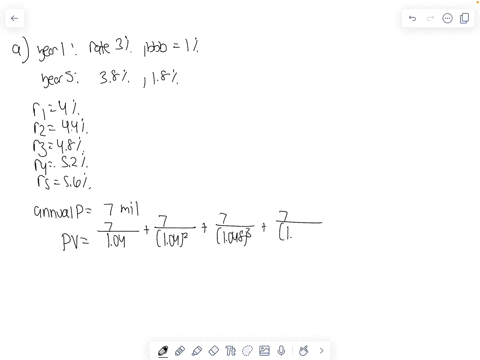 a) year 1: rate 3%, bbb = 1%
year 5: 3.8%, 1.8%
r1 = 4%.
r2 = 4.4%.
r3 = 4.8%.
r4 = 5.2%.
r5 = 5.6%.
annual P = 7 mil
PV = 7/1.04 + 7/(1.04)² + 7/(1.048)³ + 7/(1.